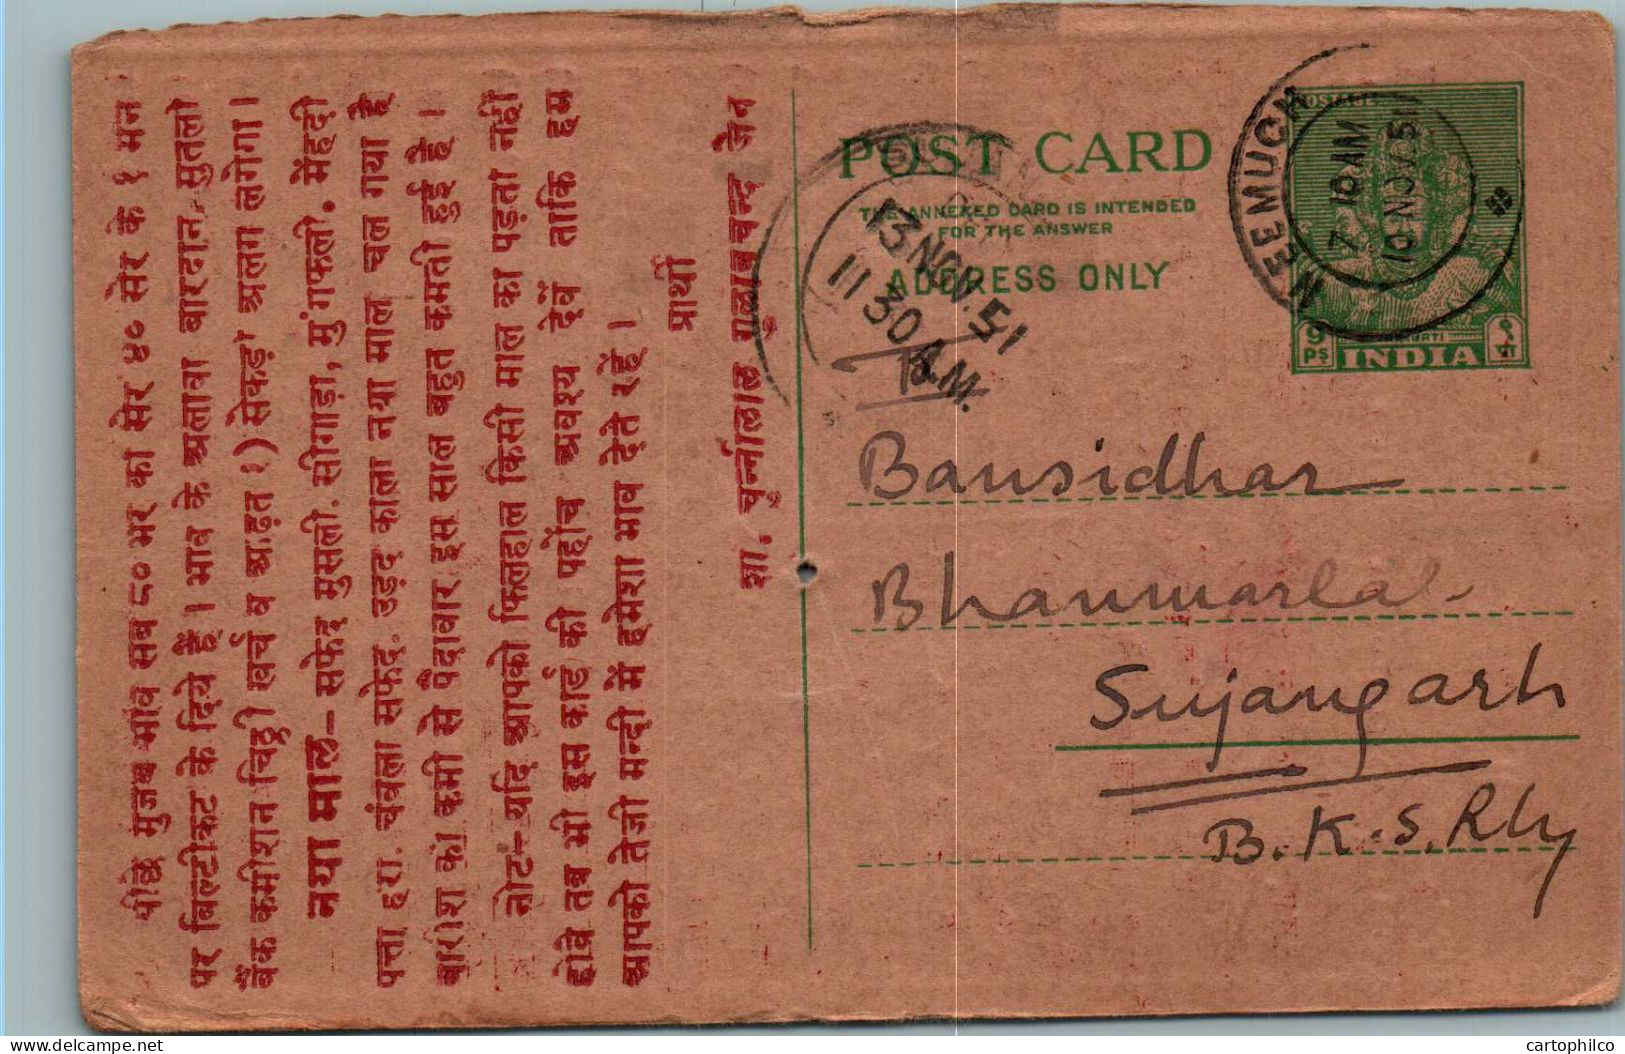 पीछे मुजब भाव सब ८० भर का सेर ४० सेर के १ मन
पर बिल्टीकट के दिये हैं। भाव के अलावा बारदान, सुतली
बैंक कमीशन चिट्ठी खर्च व आढ़त १) सेकड़ा अलग लगेगा।
नया माल– सफेद मुसली. सींगाड़ा, मुंगफली. मेंहदी
पत्ता हरा. चंवला सफेद. उड़द काला नया माल चल गया है
बारीश की कमी से पैदावार इस साल बहुत कमती हुई है।
नोट–यदि आपको फिलहाल किसी माल का पड़ता नहीं
होवे तब भी इस कार्ड की पहोंच अवश्य देवें ताकि हम
आपको तेजी मन्दी में हमेशा भाव देते रहें।
प्रार्थी
शा. चुन्नीलाल गुलाबचन्द जैन
POST CARD
THE ANNEXED CARD IS INTENDED
FOR THE ANSWER
ADDRESS ONLY
POSTAGE
9 PS
INDIA
NEEMUCH
7 10 AM
10 NOV 51
13 NOV. 51
11 30 A.M.
Bansidhar
Bhanwarlal
Sujangarh
B.K.S. Rly
cartophilco